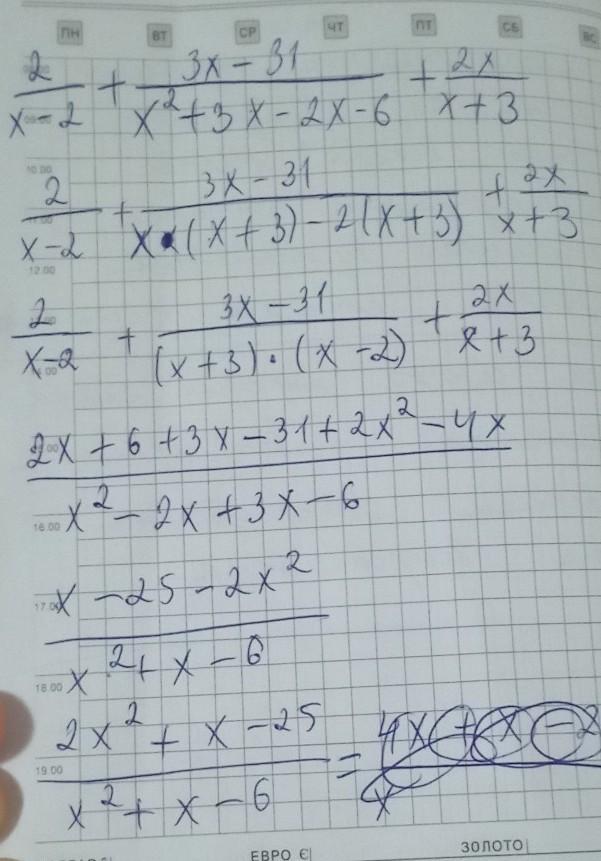 ПН ВТ СР ЧТ ПТ СБ ВС
2/(x-2) + (3x-31)/(x²+3x-2x-6) + 2x/(x+3)
10.00
2/(x-2) + (3x-31)/(x·(x+3)-2(x+3)) + 2x/(x+3)
12.00
2/(x-2) + (3x-31)/((x+3)·(x-2)) + 2x/(x+3)
(2x+6+3x-31+2x²-4x)/(x²-2x+3x-6)
16.00
(x-25-2x²)/(x²+x-6)
17.00
18.00
(2x²+x-25)/(x²+x-6) =
19.00
ЕВРО Є| ЗОЛОТО|